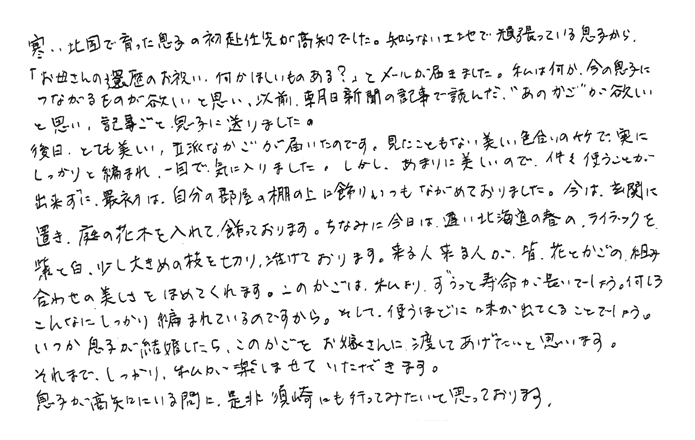 寒い、北国で育った息子の初赴任先が高知でした。知らない土地で頑張っている息子から、
「お母さんの還暦のお祝い、何かほしいものある？」とメールが届きました。私は何か、今の息子に
つながるものが欲しいと思い、以前、朝日新聞の記事で読んだ、"あのかご"が欲しい
と思い、記事ごと息子に送りました。
後日、とても美しい、立派なかごが届いたのです。見たこともない美しい色合いの竹で、実に
しっかりと編まれ、一目で気に入りました。しかし、あまりに美しいので、使うことが
出来ずに、最初は、自分の部屋の棚の上に飾りいつもながめておりました。今は、玄関に
置き、庭の花木を入れて、飾っております。ちなみに今日は、遅い北海道の春の、ライラックを
紫と白、少し大きめの枝を切り、活けております。来る人来る人が、皆、花とかごの、組み
合わせの美しさをほめてくれます。このかごは、私より、ずうっと寿命が長いでしょう。何しろ
こんなにしっかり編まれているのですから。そして、使うほどに味が出てくることでしょう。
いつか息子が結婚したら、このかごをお嫁さんに渡してあげたいと思います。
それまで、しっかり、私が楽しませていただきます。
息子が高知にいる間に、是非須崎にも行ってみたいと思っております。